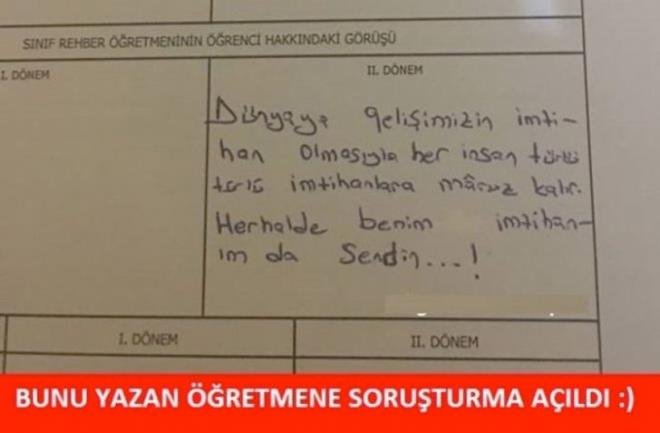 SINIF REHBER ÖĞRETMENİNİN ÖĞRENCİ HAKKINDAKİ GÖRÜŞÜ
I. DÖNEM
II. DÖNEM
Dünyaya gelişimizin imti-
han olmasıyla her insan türlü
türlü imtihanlara mâruz kalır.
Herhalde benim imtihan-
ım da Sendin...!
I. DÖNEM
II. DÖNEM
BUNU YAZAN ÖĞRETMENE SORUŞTURMA AÇILDI :)